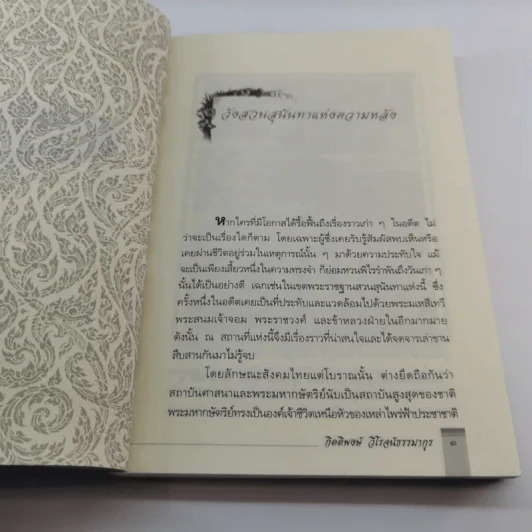 วังสวนสุนันทาแห่งความหลัง
หากใครที่มีโอกาสได้รื้อฟื้นถึงเรื่องราวเก่า ๆ ในอดีต ไม่
ว่าจะเป็นเรื่องใดก็ตาม โดยเฉพาะผู้ซึ่งเคยรับรู้สัมผัสพบเห็นหรือ
เคยผ่านชีวิตอยู่ร่วมในเหตุการณ์นั้น ๆ มาด้วยความประทับใจ แม้
จะเป็นเพียงเสี้ยวหนึ่งในความทรงจำ ก็ย่อมหวนพิไรรำพันถึงวันเก่า ๆ
นั้นได้เป็นอย่างดี เฉกเช่นในเขตพระราชฐานสวนสุนันทาแห่งนี้ ซึ่ง
ครั้งหนึ่งในอดีตเคยเป็นที่ประทับและแวดล้อมไปด้วยพระมเหสีเทวี
พระสนมเจ้าจอม พระราชวงศ์ และข้าหลวงฝ่ายในอีกมากมาย
ดังนั้น ณ สถานที่แห่งนี้จึงมีเรื่องราวที่น่าสนใจและได้จดจารเล่าขาน
สืบสานกันมาไม่รู้จบ
โดยลักษณะสังคมไทยแต่โบราณนั้น ต่างยึดถือกันว่า
สถาบันศาสนาและพระมหากษัตริย์นับเป็นสถาบันสูงสุดของชาติ
พระมหากษัตริย์ทรงเป็นองค์เจ้าชีวิตเหนือหัวของเหล่าไพร่ฟ้าประชาชาติ
กิตติพงษ์ วิโรจน์ธรรมากูร